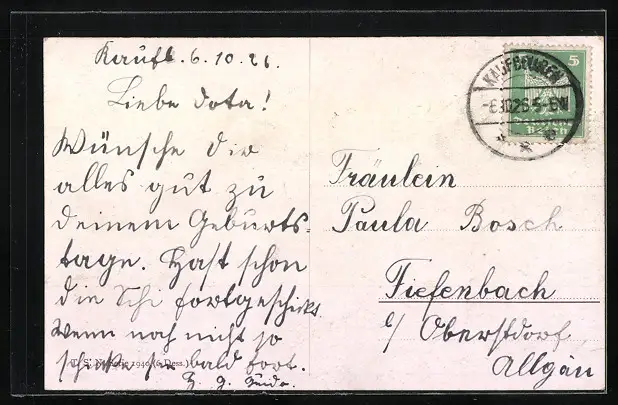 Kaufb. 6.10.26.
Liebe Dota!
Wünsche Dir
alles gut zu
deinem Geburts-
tage. Hast schon
die Schi fortgeschickt.
Wenn noch nicht so
schicke sie bald fort.
KAUFBEUREN
5
DEUTSCHES
REICH
Fräulein
Paula Bosch
Tiefenbach
b/ Oberstdorf
Allgäu